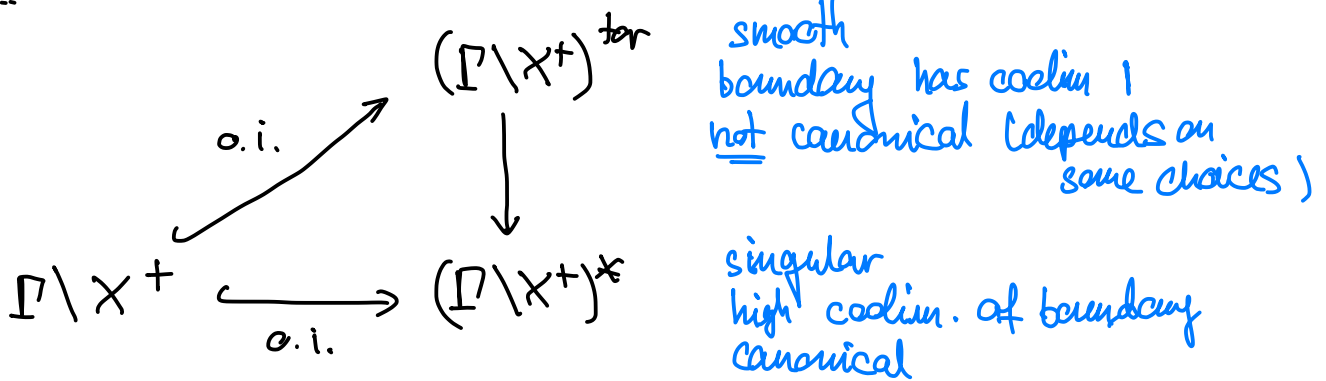 (Γ\X⁺)^tor
smooth
boundary has codim 1
not canonical (depends on
some choices)
o.i.
Γ\X⁺
o.i.
(Γ\X⁺)*
singular
high codim. of boundary
canonical